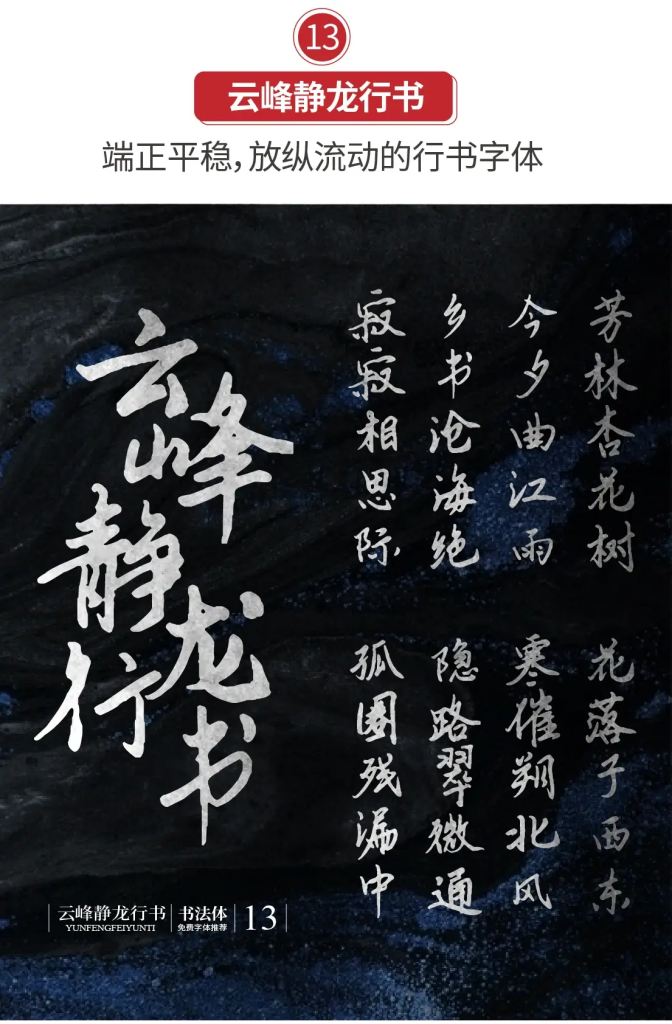 13
云峰静龙行书
端正平稳，放纵流动的行书字体
云峰
静龙
行书
芳林杏花树
花落子西东
今夕曲江雨
寒催朔北风
乡书沧海绝
隐路翠微通
寂寂相思际
孤圈残漏中
云峰静龙行书
YUNFENGFEIYUNTI
书法体
免费字体推荐
13